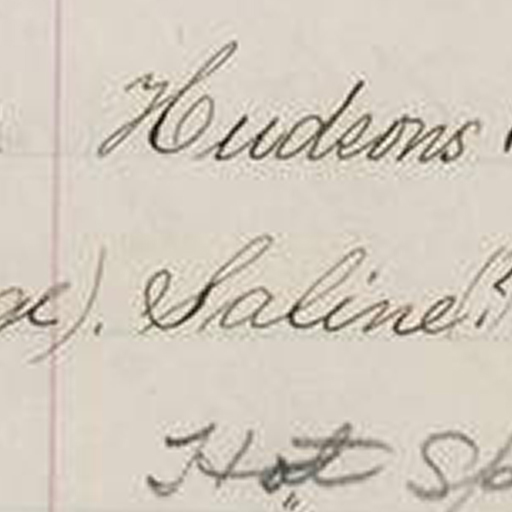 Hudsons
ge). Saline(?)
Hot Sp